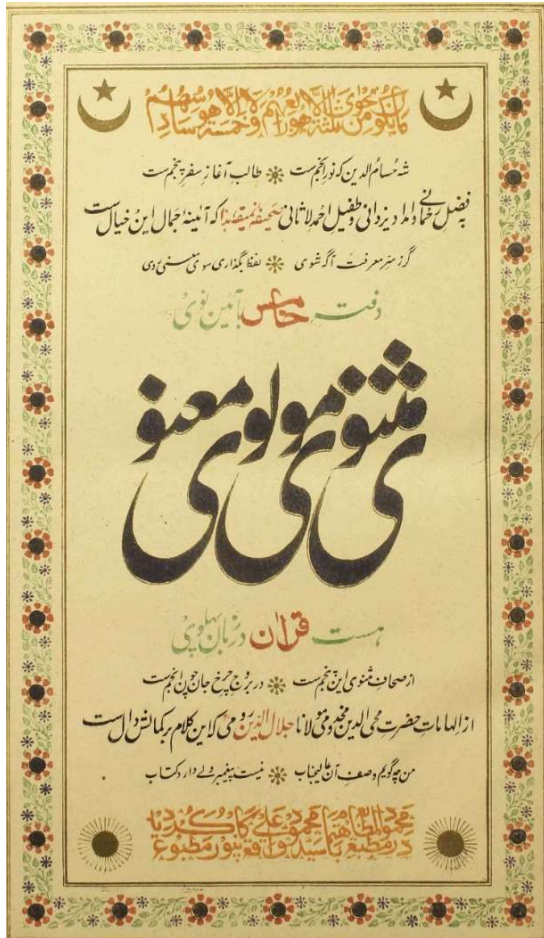 ما یکون من نجوی ثلثة الا هو رابعهم ولا خمسة الا هو سادسهم
شه حسام الدین که نور انجم ست طالب آغاز سفر پنجم ست
به فضل رحمانی و امداد یزدانی و طفیل احمد لاثانی صحیفه که آئینهٔ جمال این خیال ست
گر ز سر معرفت آگه شوی لفظ بگذاری سوی معنی روی
دفتر خامس بآئین نوی
مثنوی مولوی معنوی
هست قرآن در زبان پهلوی
از صحاف مثنوی این پنجم ست در بروج چرخ جان چون انجم ست
از الهامات حضرت محی الدین مخدومی مولانا جلال الدین رومی کاین کلام بر کمالش دال ست
من چه گویم وصف آن عالیجناب نیست پیغمبر ولی دارد کتاب
محمود المطابع محمود علی
در مطبع مطبوع